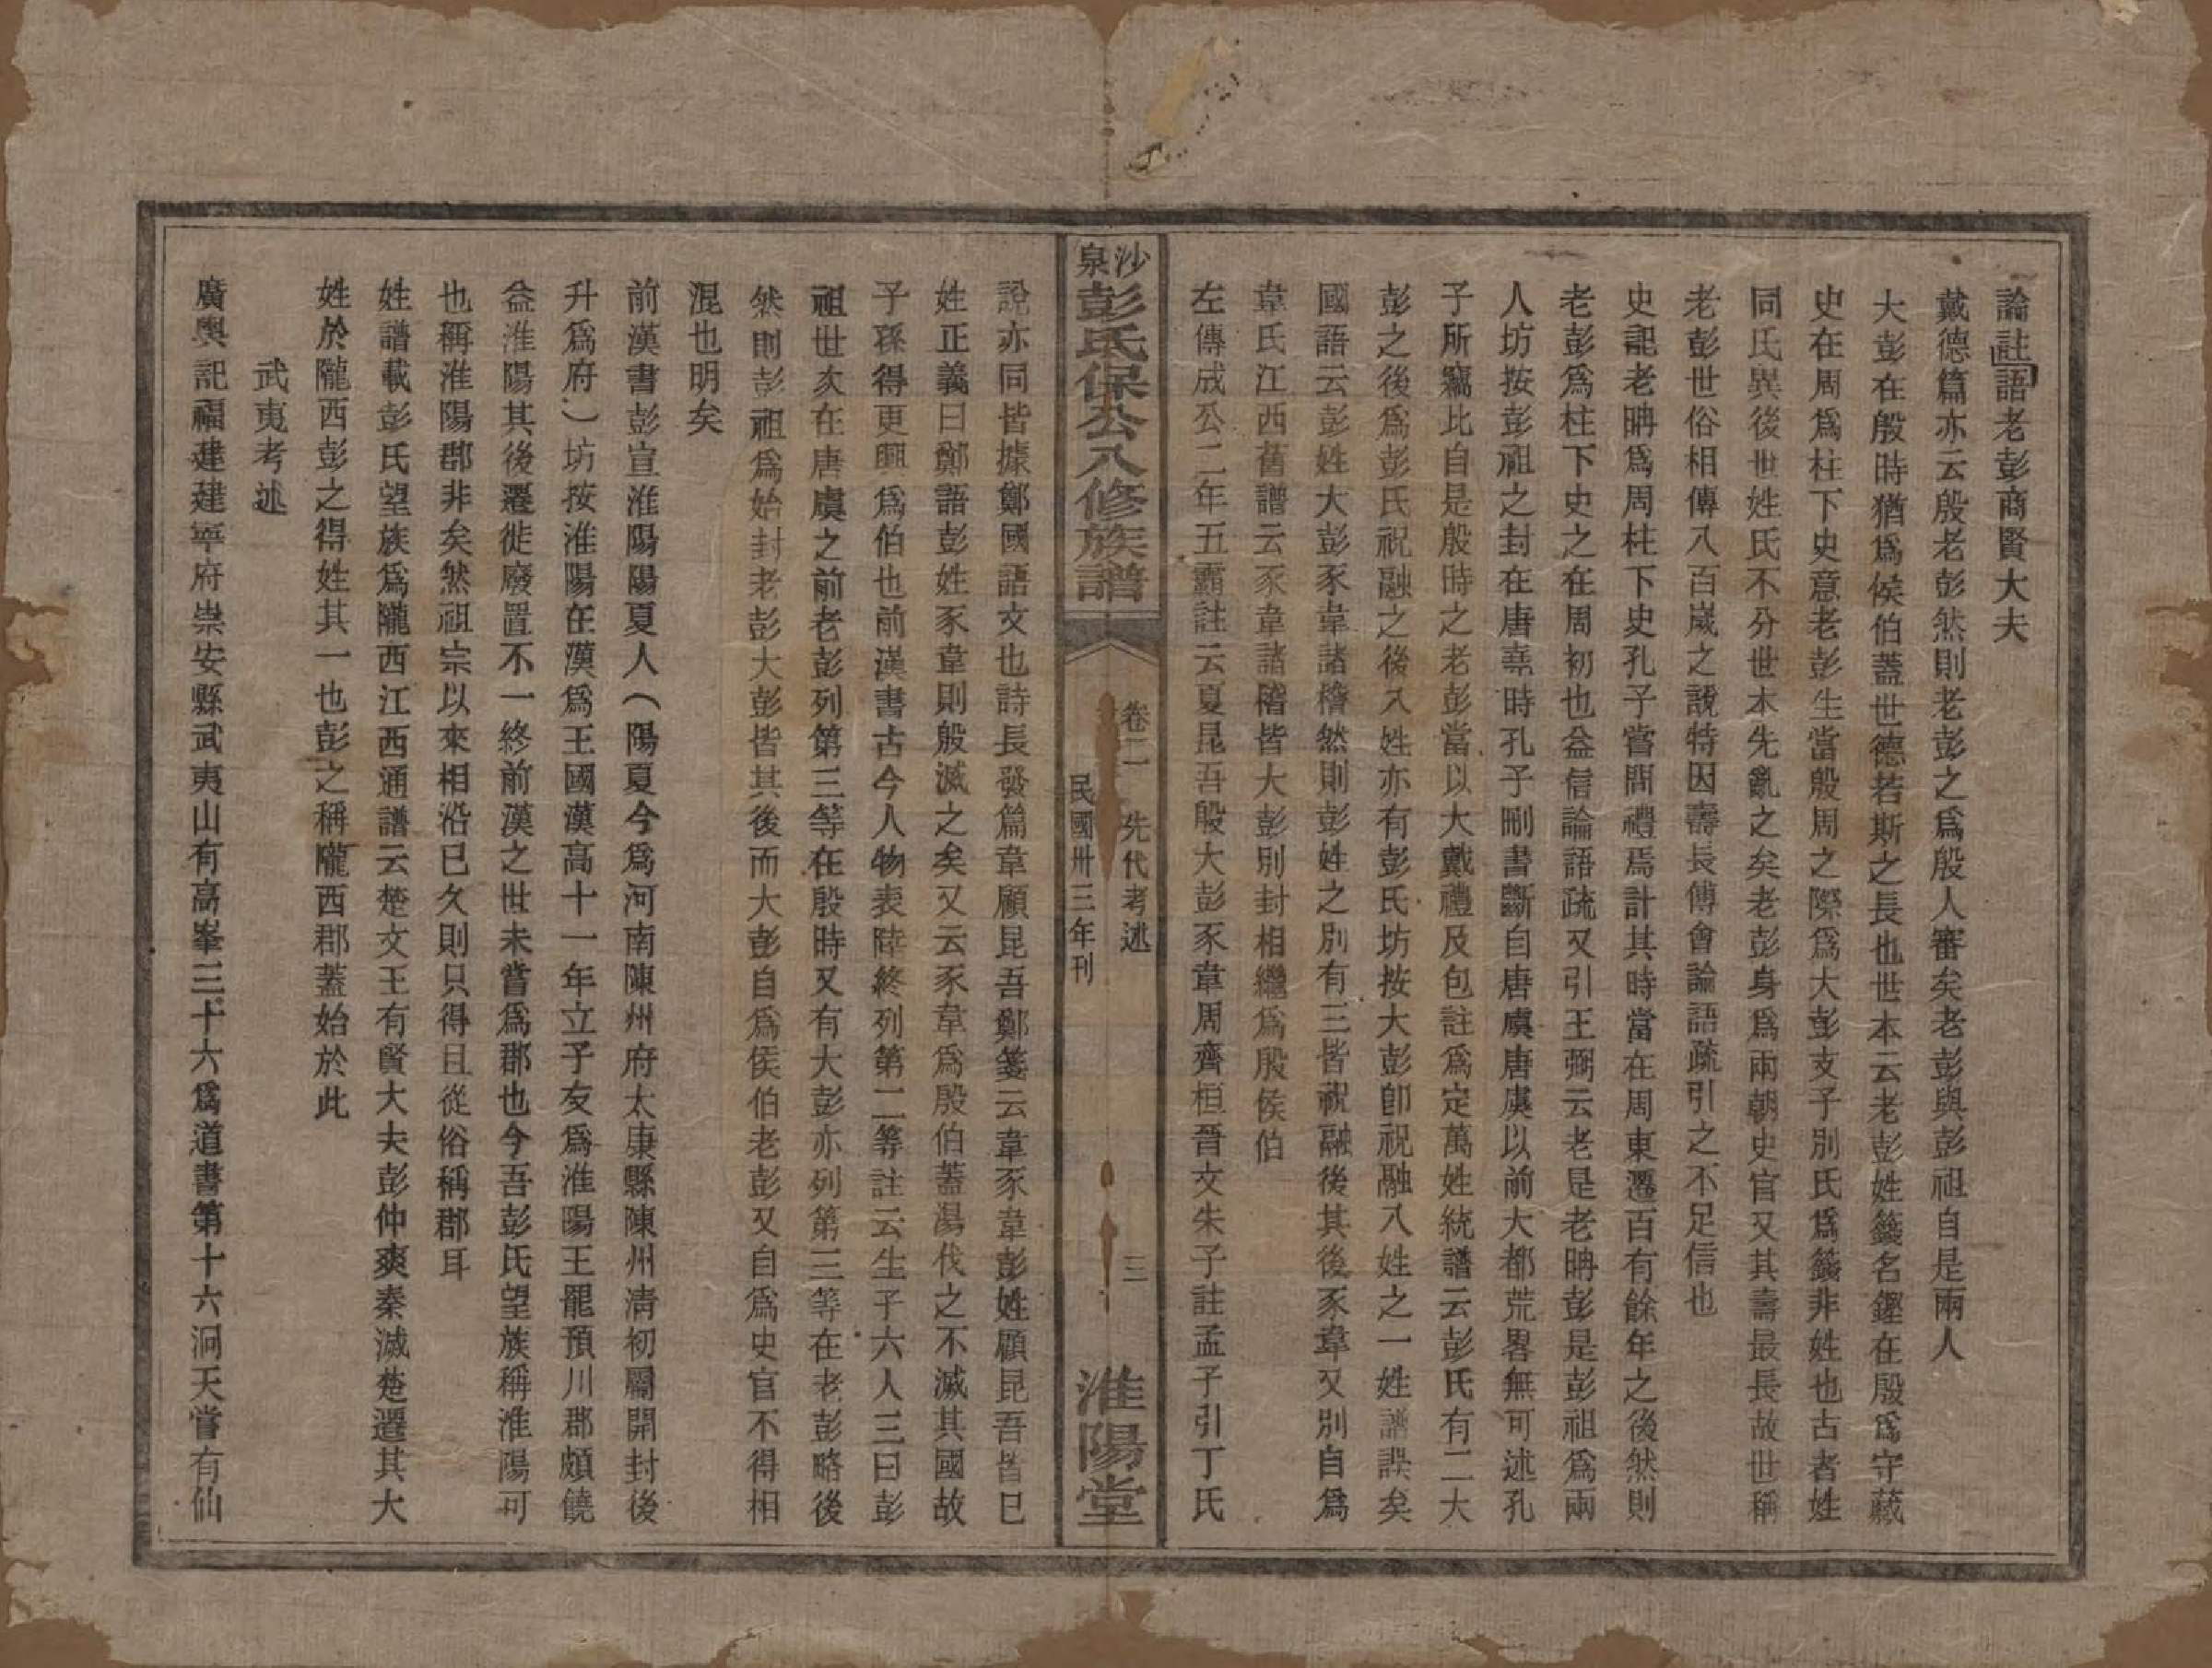 論註語老彭商賢大夫
戴德篇亦云殷老彭然則老彭之爲殷人審矣老彭與彭祖自是兩人
大彭在殷時猶爲侯伯蓋世德若斯之長也世本云老彭姓籛名鏗在殷爲守藏
史在周爲柱下史意老彭生當殷周之際爲大彭支子別氏爲籛非姓也古者姓
同氏異後世姓氏不分世本先亂之矣老彭身爲兩朝史官又其壽最長故世稱
老彭世俗相傳八百歲之說特因壽長傅會論語疏引之不足信也
史記老聃爲周柱下史孔子嘗問禮焉計其時當在周東遷百有餘年之後然則
老彭爲柱下史之在周初也益信論語疏又引王弼云老是老聃彭是彭祖爲兩
人坊按彭祖之封在唐堯時孔子刪書斷自唐虞唐虞以前大都荒畧無可述孔
子所竊比自是殷時之老彭當以大戴禮及包註爲定萬姓統譜云彭氏有二大
彭之後爲彭氏祝融之後八姓亦有彭氏坊按大彭卽祝融八姓之一姓譜誤矣
國語云彭姓大彭豕韋諸稽然則彭姓之別有三皆祝融後其後豕韋又別自爲
韋氏江西舊譜云豕韋諸稽皆大彭別封相繼爲殷侯伯
左傳成公二年五霸註云夏昆吾殷大彭豕韋周齊桓晉文朱子註孟子引丁氏
沙泉彭氏保公八修族譜
卷二 先代考述 三
民國卅三年刊
淮陽堂
說亦同皆據鄭國語文也詩長發篇韋顧昆吾鄭箋云韋豕韋彭姓顧昆吾皆已
姓正義曰鄭語彭姓豕韋則殷滅之矣又云豕韋爲殷伯蓋湯伐之不滅其國故
子孫得更興爲伯也前漢書古今人物表陸終列第二等註云生子六人三曰彭
祖世次在唐虞之前老彭列第三等在殷時又有大彭亦列第三等在老彭略後
然則彭祖爲始封老彭大彭皆其後而大彭自爲侯伯老彭又自爲史官不得相
混也明矣
前漢書彭宣淮陽陽夏人（陽夏今爲河南陳州府太康縣陳州清初屬開封後
升爲府）坊按淮陽在漢爲王國漢高十一年立子友爲淮陽王罷預川郡頗饒
益淮陽其後遷徙廢置不一終前漢之世未嘗爲郡也今吾彭氏望族稱淮陽可
也稱淮陽郡非矣然祖宗以來相沿已久則只得且從俗稱郡耳
姓譜載彭氏望族爲隴西江西通譜云楚文王有賢大夫彭仲爽秦滅楚遷其大
姓於隴西彭之得姓其一也彭之稱隴西郡蓋始於此
武夷考述
廣輿記福建建寧府崇安縣武夷山有高峯三十六爲道書第十六洞天嘗有仙